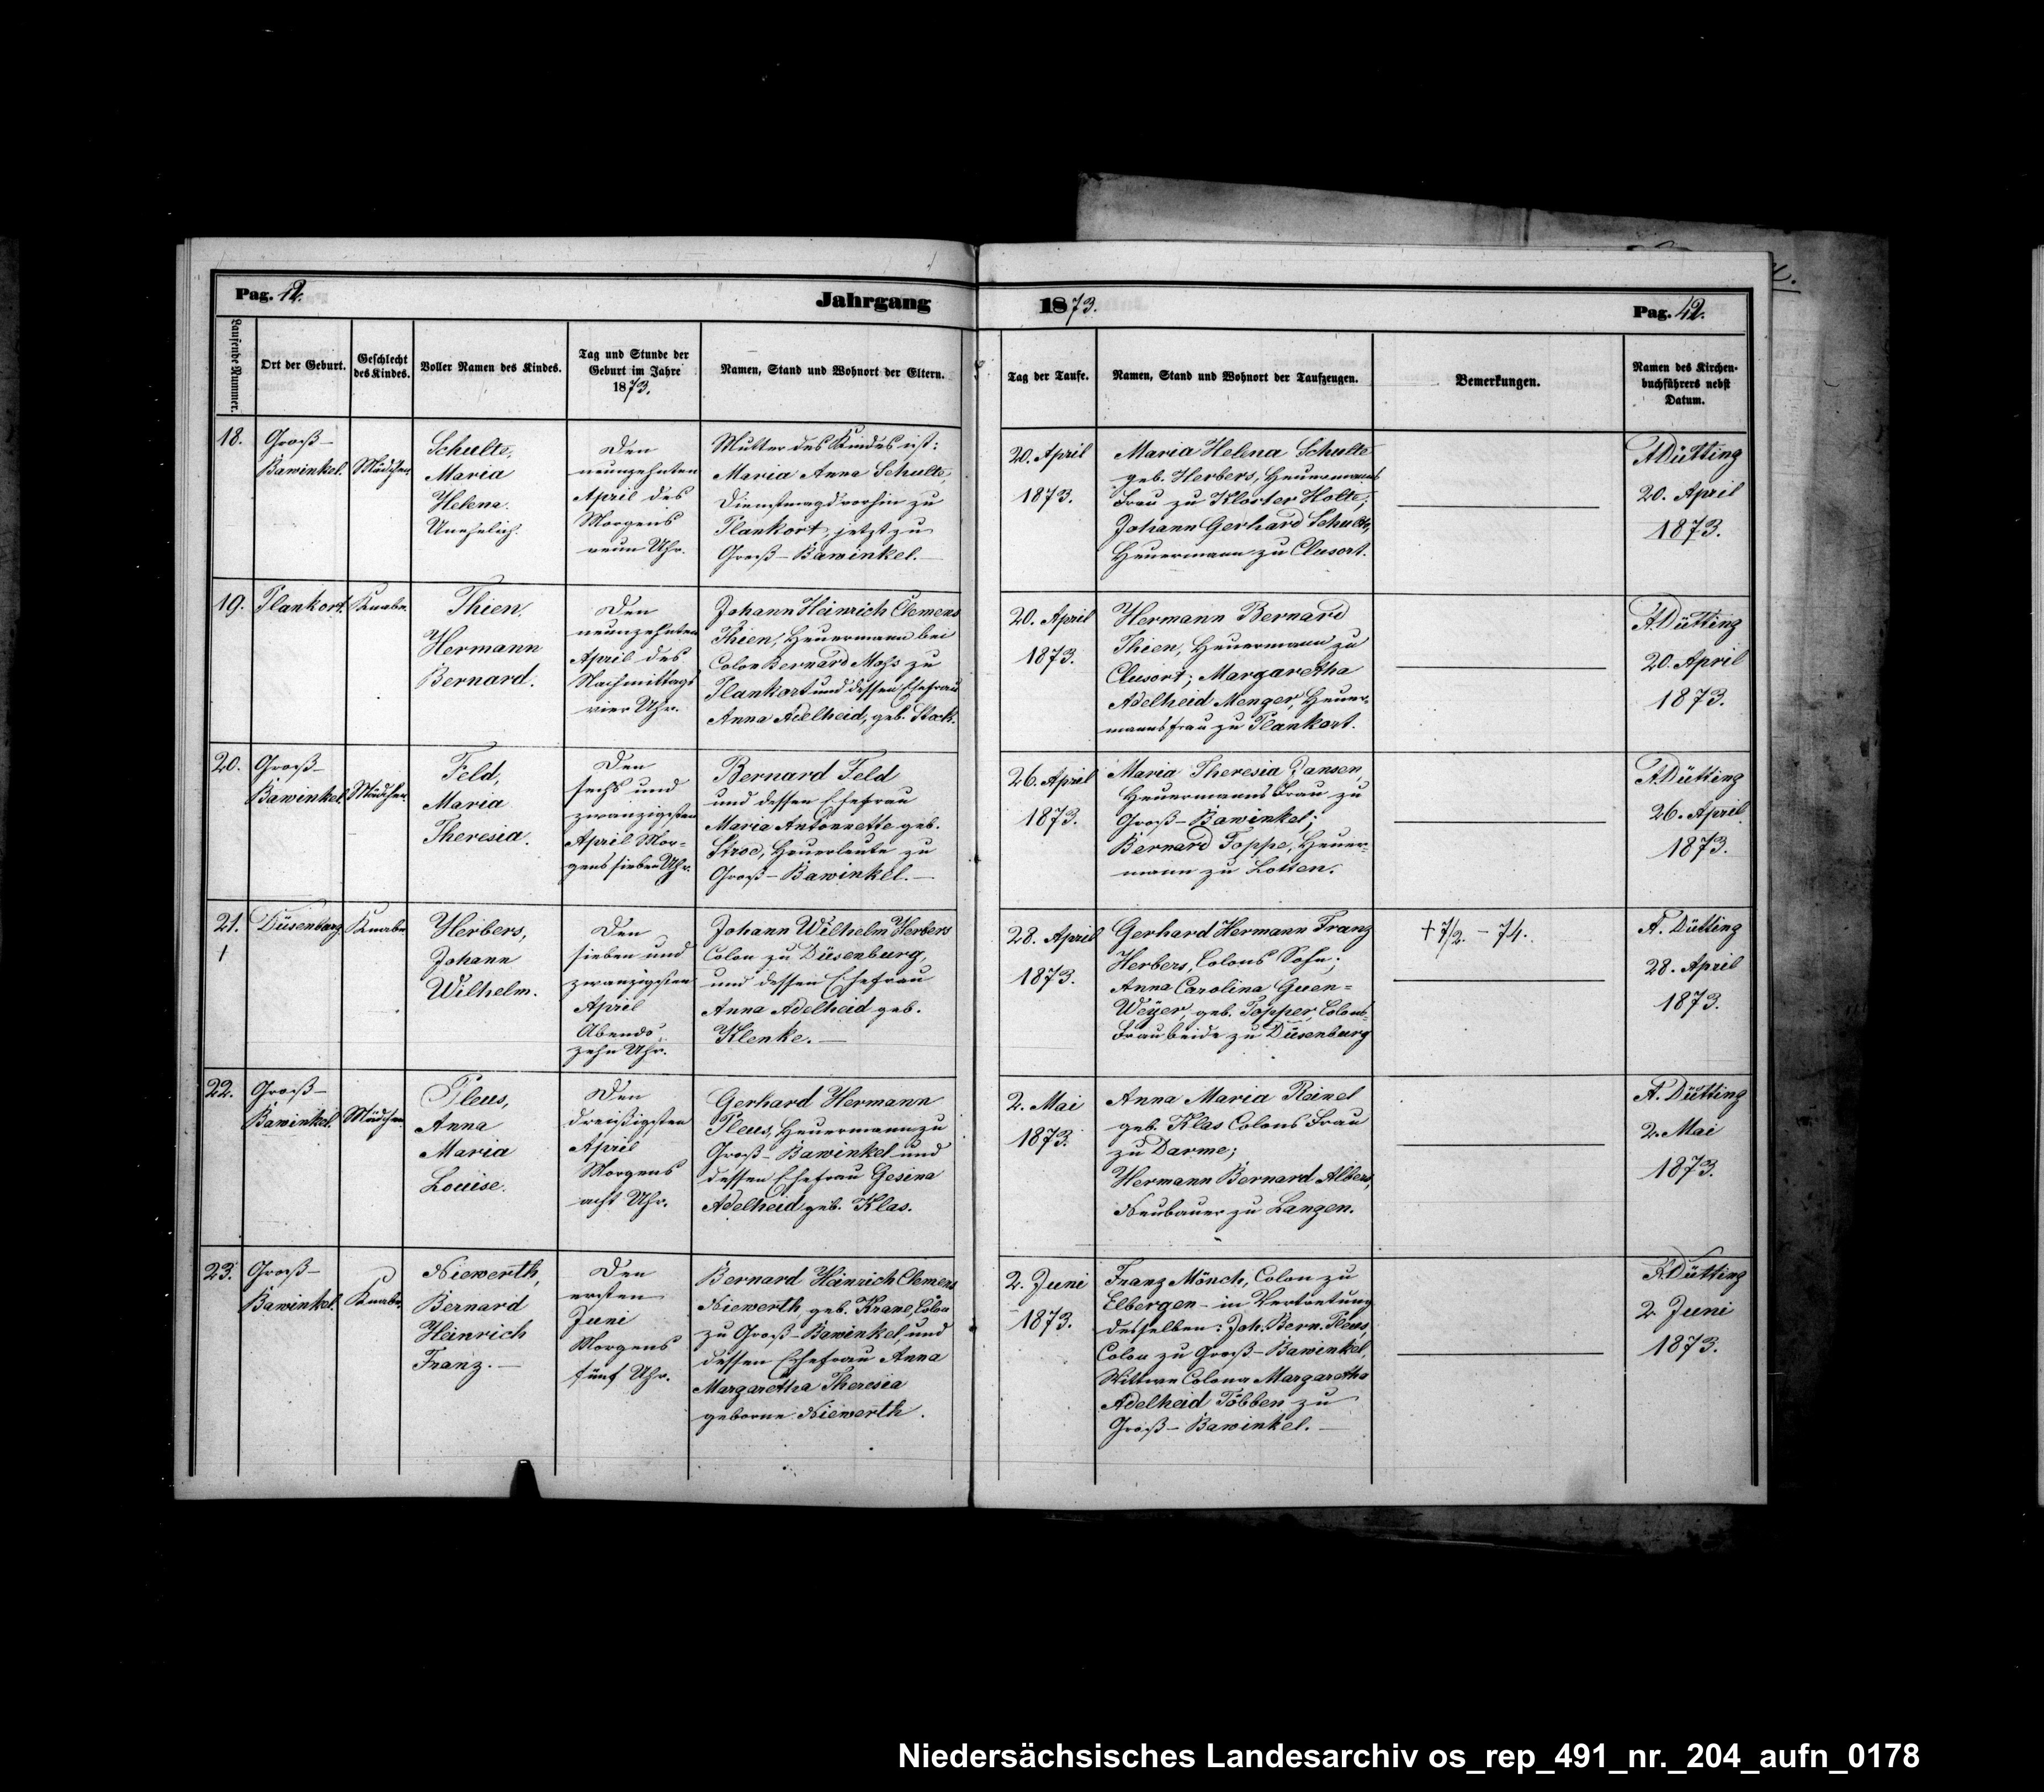 Pag. 42.
Jahrgang
1873.
Pag. 42.
Laufende Nummer.
Ort der Geburt.
Geschlecht
des Kindes.
Voller Namen des Kindes.
Tag und Stunde der
Geburt im Jahre
1873.
Namen, Stand und Wohnort der Eltern.
Tag der Taufe.
Namen, Stand und Wohnort der Taufzeugen.
Bemerkungen.
Namen des Kirchen-
buchführers nebst
Datum.
18.
Groß-
Bawinkel.
Mädchen
Schulte,
Maria
Helena.
Unehelich.
Den
neunzehnten
April des
Morgens
neun Uhr.
Mutter des Kindes ist:
Maria Anna Schulte,
Dienstmagd vorhin zu
Plankort, jetzt zu
Groß-Bawinkel.
20. April
1873.
Maria Helena Schulte
geb. Herbers, Heuermanns
Frau zu Kloster Holte;
Johann Gerhard Schulte,
Heuermann zu Clusort.
A. Dütting
20. April
1873.
19.
Plankort.
Knabe.
Thien,
Hermann
Bernard.
Den
neunzehnten
April des
Nachmittags
vier Uhr.
Johann Heinrich Clemens
Thien, Heuermann bei
Colon Bernard Mohs zu
Plankort und dessen Ehefrau
Anna Adelheid, geb. Stock.
20. April
1873.
Hermann Bernard
Thien, Heuermann zu
Clusort; Margaretha
Adelheid Menger, Heuer-
mannsfrau zu Plankort.
A. Dütting
20. April
1873.
20.
Groß-
Bawinkel
Mädchen.
Feld,
Maria
Theresia.
Den
sechs und
zwanzigsten
April Mor-
gens sieben Uhr.
Bernard Feld
und dessen Ehefrau
Maria Antonnette geb.
Stroe, Heuerleute zu
Groß-Bawinkel.
26. April
1873.
Maria Theresia Jansen,
Heuermanns Frau zu
Groß-Bawinkel;
Bernard Toppe, Heuer-
mann zu Lotten.
A. Dütting
26. April
1873.
21.
Düsenburg.
Knabe
Herbers,
Johann
Wilhelm.
Den
sieben und
zwanzigsten
April
Abends
zehn Uhr.
Johann Wilhelm Herbers
Colon zu Düsenburg,
und dessen Ehefrau
Anna Adelheid geb.
Klenke.
28. April
1873.
Gerhard Hermann Franz
Herbers, Colons Sohn;
Anna Carolina Quen=
Weyer, geb. Topper, Colons-
Frau beide zu Düsenburg
† 7/2. - 74.
A. Dütting
28. April
1873.
22.
Groß-
Bawinkel.
Mädchen
Pleus,
Anna
Maria
Louise.
Den
dreißigsten
April
Morgens
acht Uhr.
Gerhard Hermann
Pleus, Heuermann zu
Groß-Bawinkel und
dessen Ehefrau Gesina
Adelheid geb. Klas.
2. Mai
1873.
Anna Maria Reinel
geb. Klas Colons Frau
zu Darme;
Hermann Bernard Albers,
Neubauer zu Langen.
A. Dütting
2. Mai
1873.
23.
Groß-
Bawinkel.
Knabe.
Niewerth,
Bernard
Heinrich
Franz.
Den
ersten
Juni
Morgens
fünf Uhr.
Bernard Heinrich Clemens
Niewerth, geb. Krane, Colon
zu Groß-Bawinkel, und
dessen Ehefrau Anna
Margaretha Theresia
geborne Niewerth.
2. Juni
1873.
Franz Mönch, Colon zu
Elbergen - in Vertretung
desselben: Joh. Bern. Pleus,
Colon zu Groß-Bawinkel,
Wittwe Colona Margaretha
Adelheid Többen zu
Groß-Bawinkel.
A. Dütting
2. Juni
1873.
Niedersächsisches Landesarchiv os_rep_491_nr._204_aufn_0178